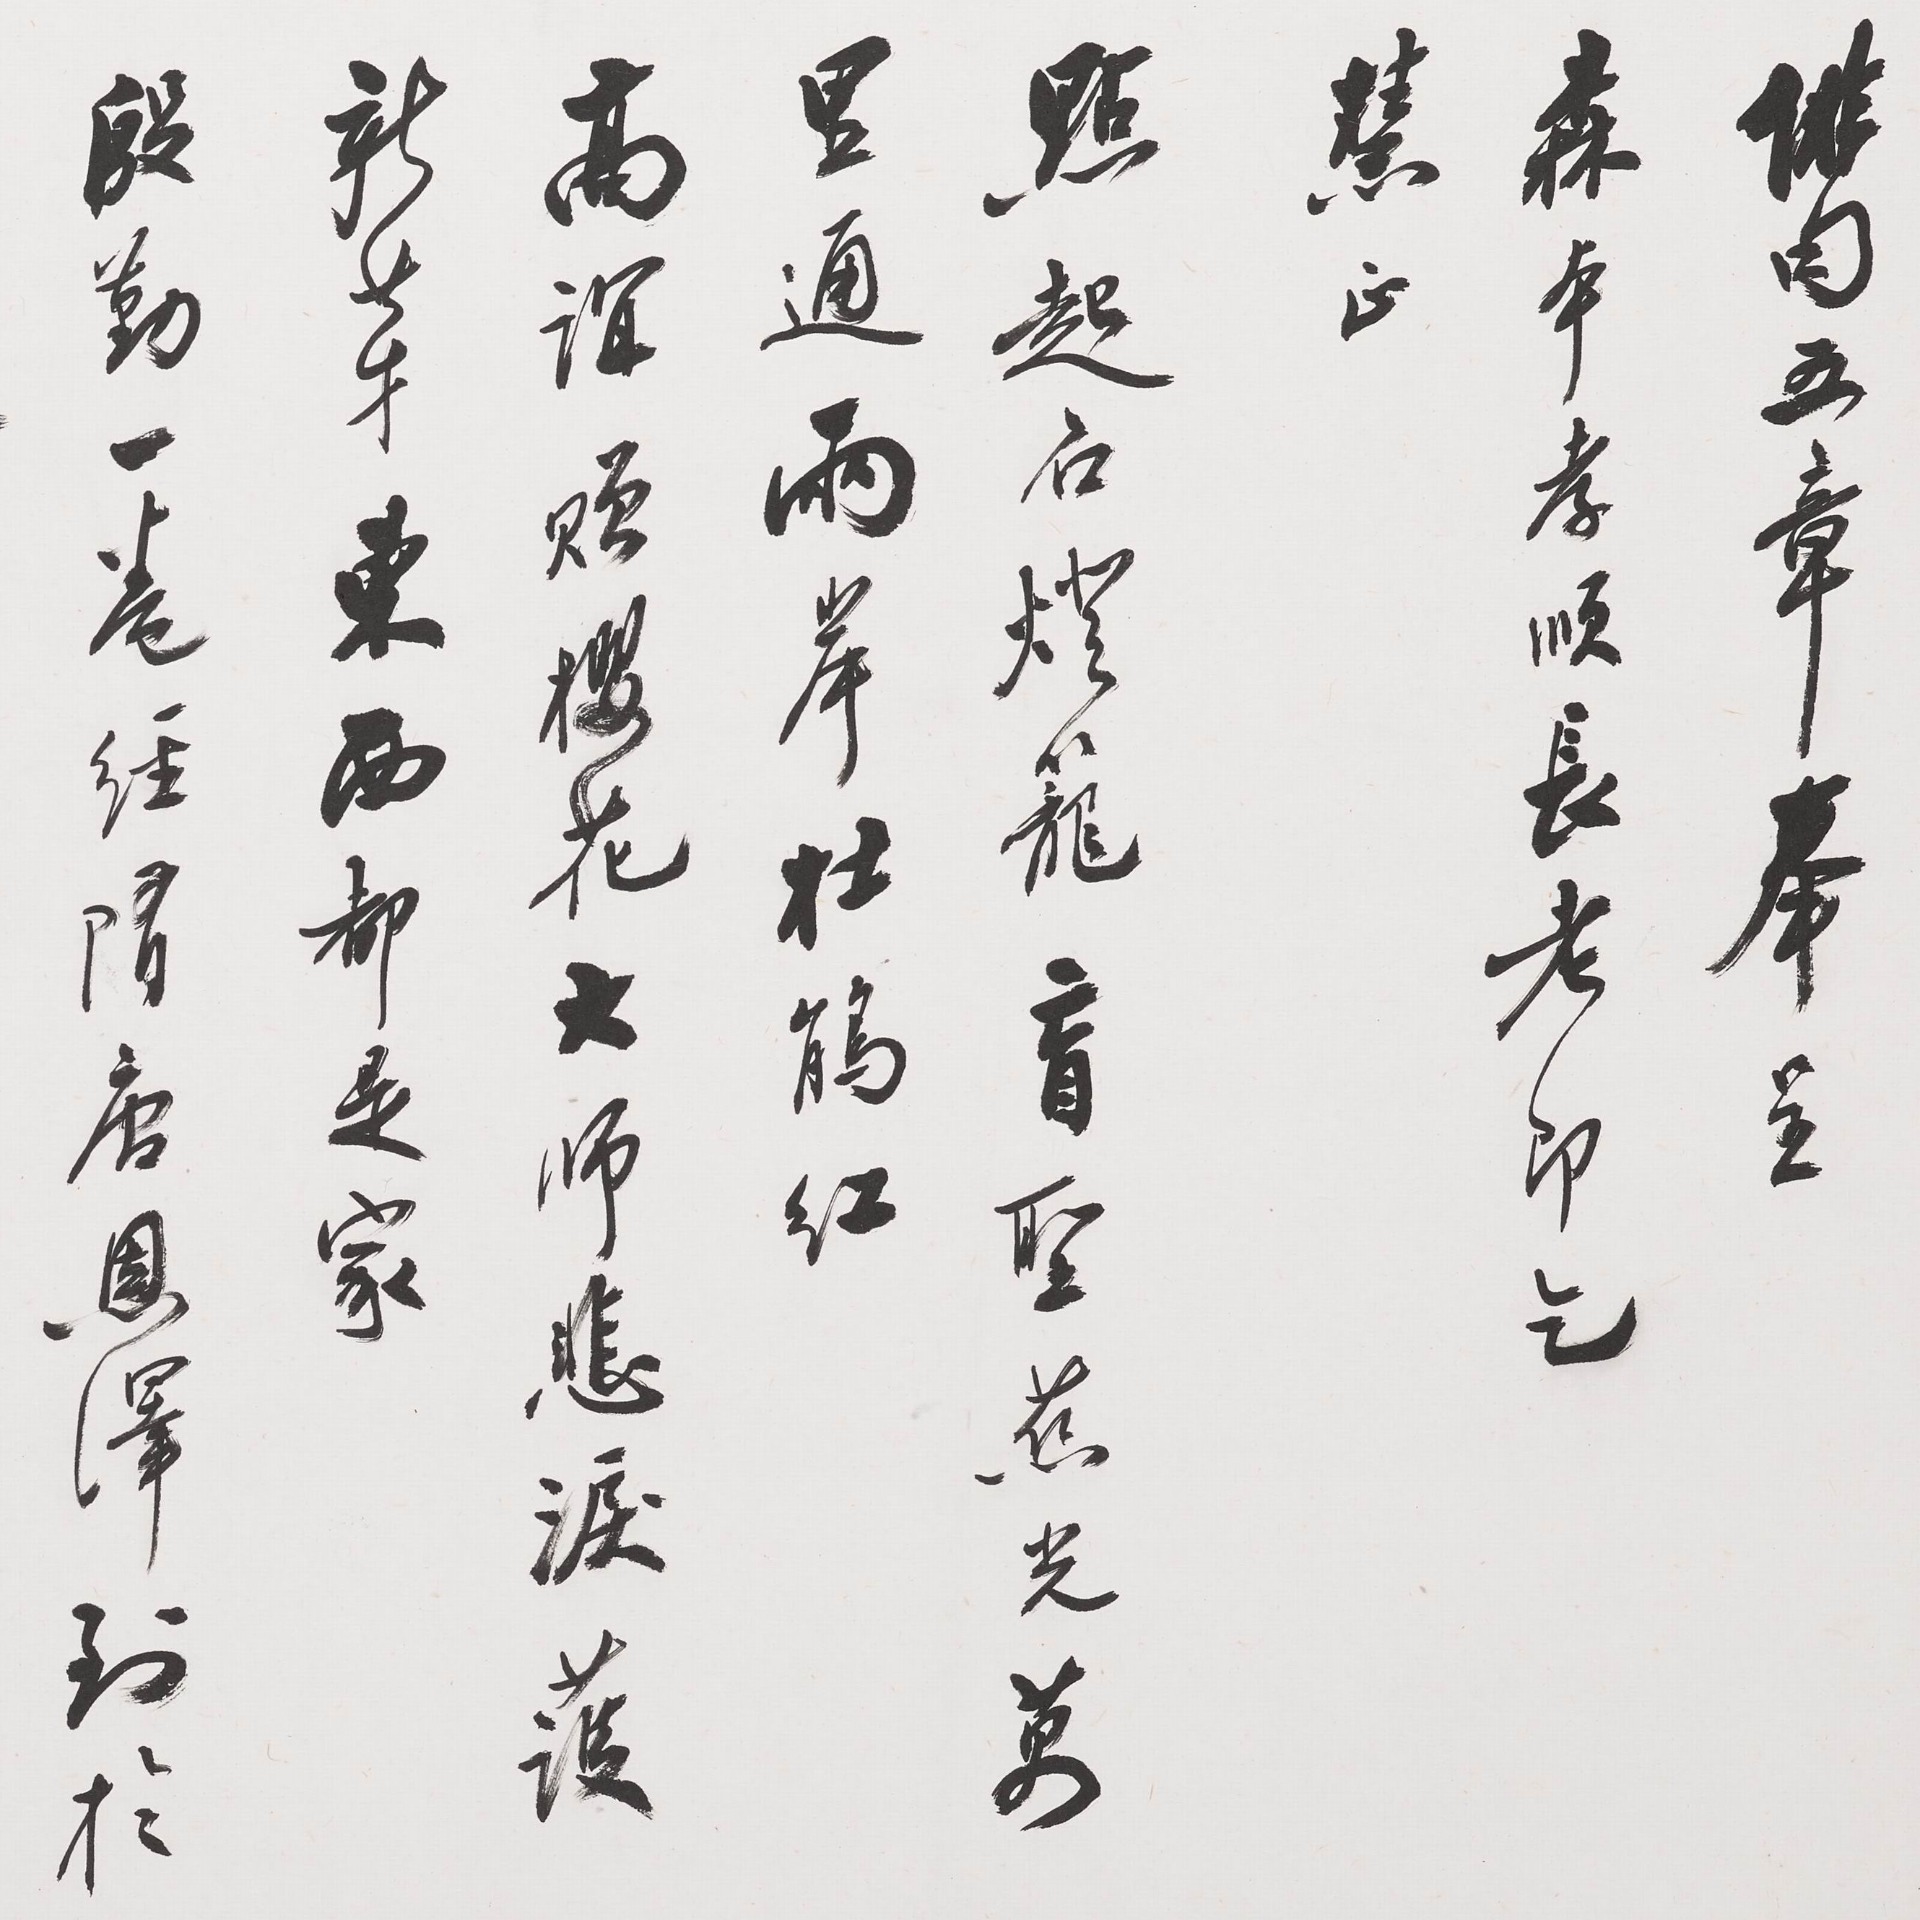 俳句五章奉呈
森本孝順長老即乞
慧正
點起石燈籠盲聖慈光萬
里通兩岸杜鵑紅
高誼贈櫻花大師悲淚護
新芽東西都是家
殷勤一卷經隋唐恩澤到於